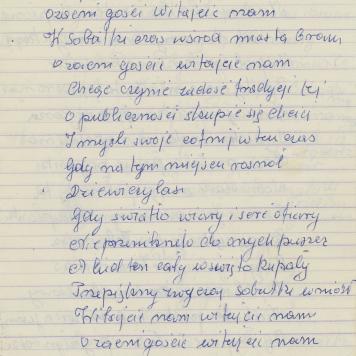 O zacni goście witajcie nam
W sobótki czas wśród miasta bram
O zacni goście witajcie nam
Chcąc czynić zadość tradycji tej
O publiczności skupić się chciej
I myśli swoje cofnij w ten czas
Gdy na tym miejscu rosnół
Dziewiczy las
Gdy światło wiary i serc ofiary
Nie przeniknęło do onych puszcz
A lud ten cały w święto kupały
Przepiękny zwyczaj sobótki wniósł
Witajcie nam witajcie nam
O zacni goście witajcie nam